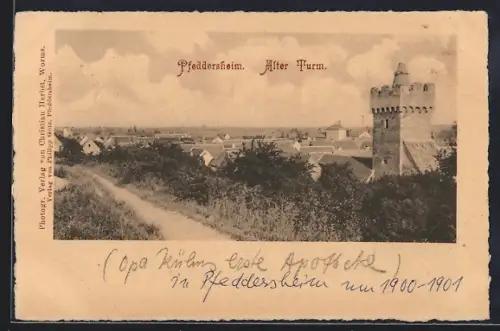 Pfeddersheim. Alter Turm.
Photogr. Verlag von Christian Herbst, Worms.
Verlag von Philipp Pfeddersheim.
(Opa Kühns erste Apotheke)
in Pfeddersheim um 1900-1901